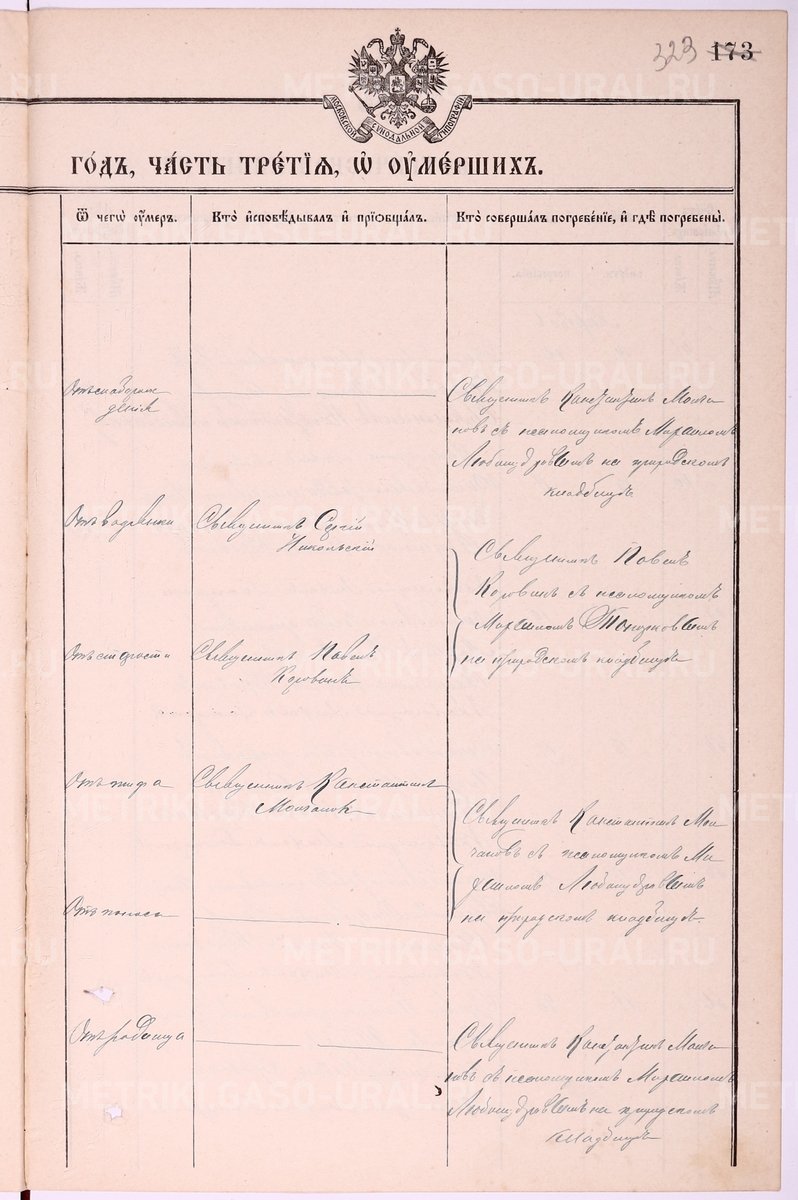 323 173
МОСКОВСКОЙ СѴНОДАЛЬНОЙ ТИПОГРАФІИ
ГО́ДЪ, ЧА́СТЬ ТРЕ́ТІѦ, Ѡ҆ ОУ҆МЕ́РШИХЪ.
Ѿ чегѡ̀ оу҆́мер.
Кто̀ и҆сповѣ́дывалъ и҆ прїѡбща́лъ.
Кто̀ соверша́лъ погребе́нїе, и҆ гдѣ̀ погребены̀.
Отъ слаборож
денія
Священникъ Константинъ Молча
новъ съ псаломщикомъ Михаиломъ
Любомудровымъ на приходскомъ
кладбищѣ
Отъ водянки
Священникъ Сергій
Никольскій
Священникъ Павелъ
Коровинъ съ псаломщикомъ
Михаиломъ
на приходскомъ кладбищѣ
Отъ старости
Священникъ Павелъ
Коровинъ
Отъ тифа
Священникъ Константинъ
Молчановъ
Священникъ Константинъ Мол
чановъ съ псаломщикомъ Ми
хаиломъ Любомудровымъ
на приходскомъ кладбищѣ.
Отъ поноса
Отъ родимца
Священникъ Константинъ Молча
новъ съ псаломщикомъ Михаиломъ
Любомудровымъ на приходскомъ
кладбищѣ
METRIKI.GASO-URAL.RU